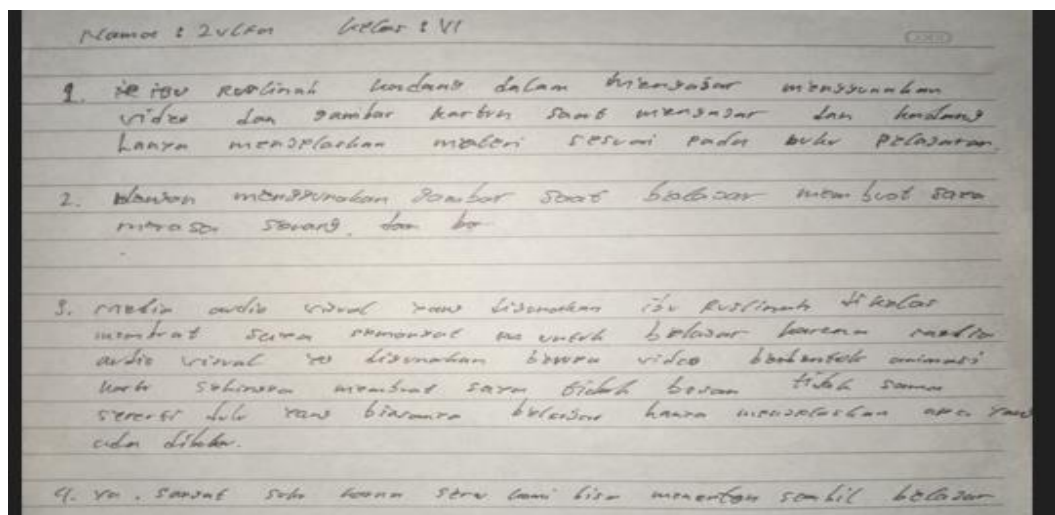 Nama : Zulfa Kelas : VI
1. ibu Ruslinah kadang dalam mengajar menggunakan
video dan gambar kartun saat mengajar dan kadang
hanya menjelaskan materi sesuai pada buku pelajaran.
2. dengan menggunakan gambar saat belajar membuat saya
merasa senang. dan be
3. media audio visual yang digunakan ibu Ruslinah di kelas
membuat saya semangat untuk belajar karena media
audio visual yg digunakan berupa video berbentuk animasi
sehingga membuat saya tidak bosan tidak sama
seperti dulu yang biasanya belajar hanya menjelaskan apa yang
ada dibuku.
4. ya. sangat seru kami bisa menonton sambil belajar